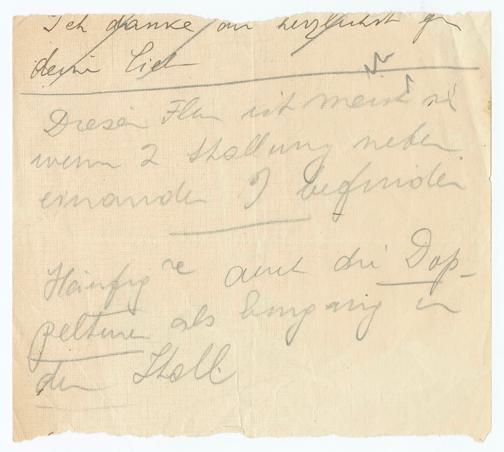 Ich danke dir herzlichst für
deine Lieb
Dieser Flur ist meist
wenn 2 Stallung neben
einander befinden
Häufig auch die Dop-
peltüre als Eingang in
den Stall